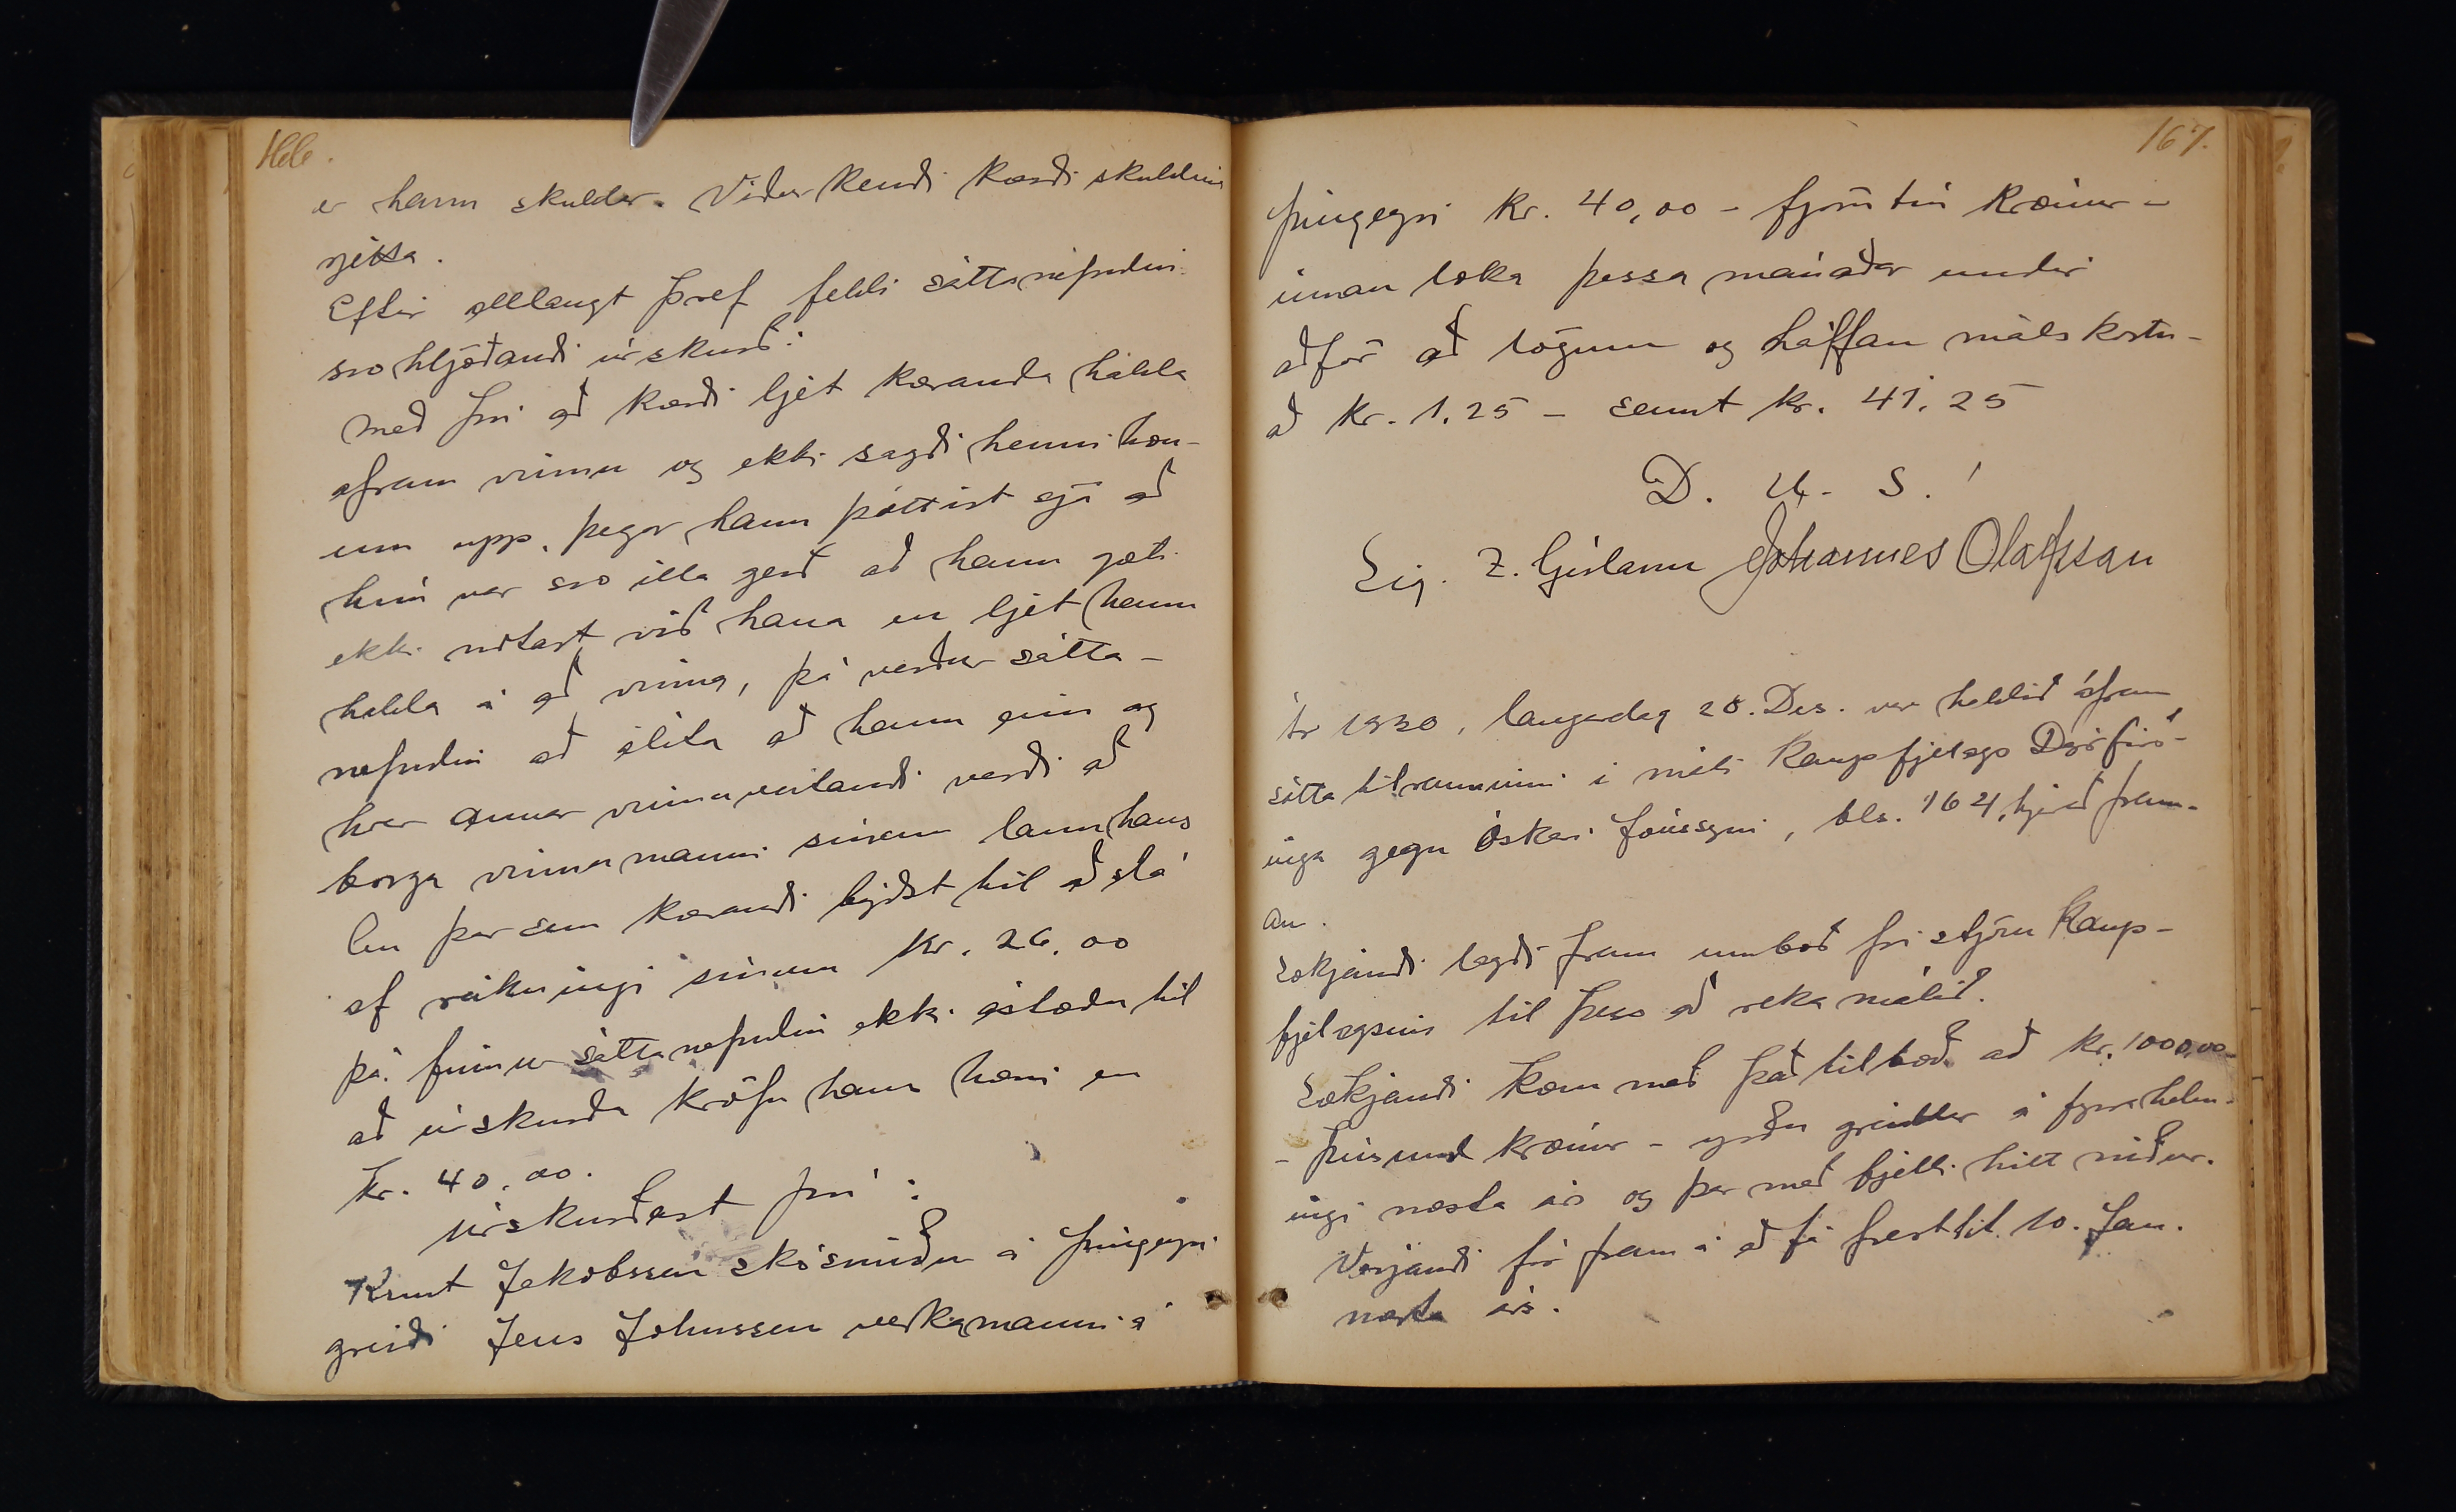 166.
er hann skuldar. Viðurkendi kærði skuldina
rjetta.
Eftir alllangt þref feldi sáttanefndin
svo hljóðandi úrskurð:
Með því að kærði ljét kæranda halda
áfram vinnu og ekki sagði henni hon-
um upp, þegar hann þóttist sjá að
hún var svo illa gerð að hann gæti
ekki notast við hana en ljét hann
halda á að vinna, þá verður sátta-
nefndin að álíta að hann eins og
hver annar vinnuveitandi verði að
borga vinnumanni sínum laun hans
En þar sem kærandi býðst til að slá
af reikningi sínum kr. 26,00
þá finnur sáttanefndin ekki ástæðu til
að úrskurða kröfu hans hærri en
kr. 40.00.
Úrskurðast því:
Knut Jakobssen skósmiður á Þingeyri
greiði Jens Johnssen verkamanni á
167.
Þingeyri kr. 40,00 - fjörutíu krónur -
innan loka þessa mánaðar undir
aðför að lögum og hálfan málskostn-
að kr. 1.25 - samt kr. 41.25
D. U. S.
Sig. Z. Gíslason Jóhannes Ólafsson
Ár 1930, laugardag 28. Des. var haldið áfram
sáttatilrauninni í máli Kaupfjelags Dýrfirð-
inga gegn Óskari Jónssyni, bls. 164, hjer að fram-
an.
Sækjandi lagði fram umboð frá stjórn Kaup-
fjelagsins til þess að reka málið.
Sækjandi kom með það tilboð að kr. 1000,00
- þúsund krónur - yrðu greiddar á fyrra helm-
ingi næsta árs og þar með fjelli hitt niður.
Verjandi fór fram á að fá frest til 10. Jan.
næsta árs.